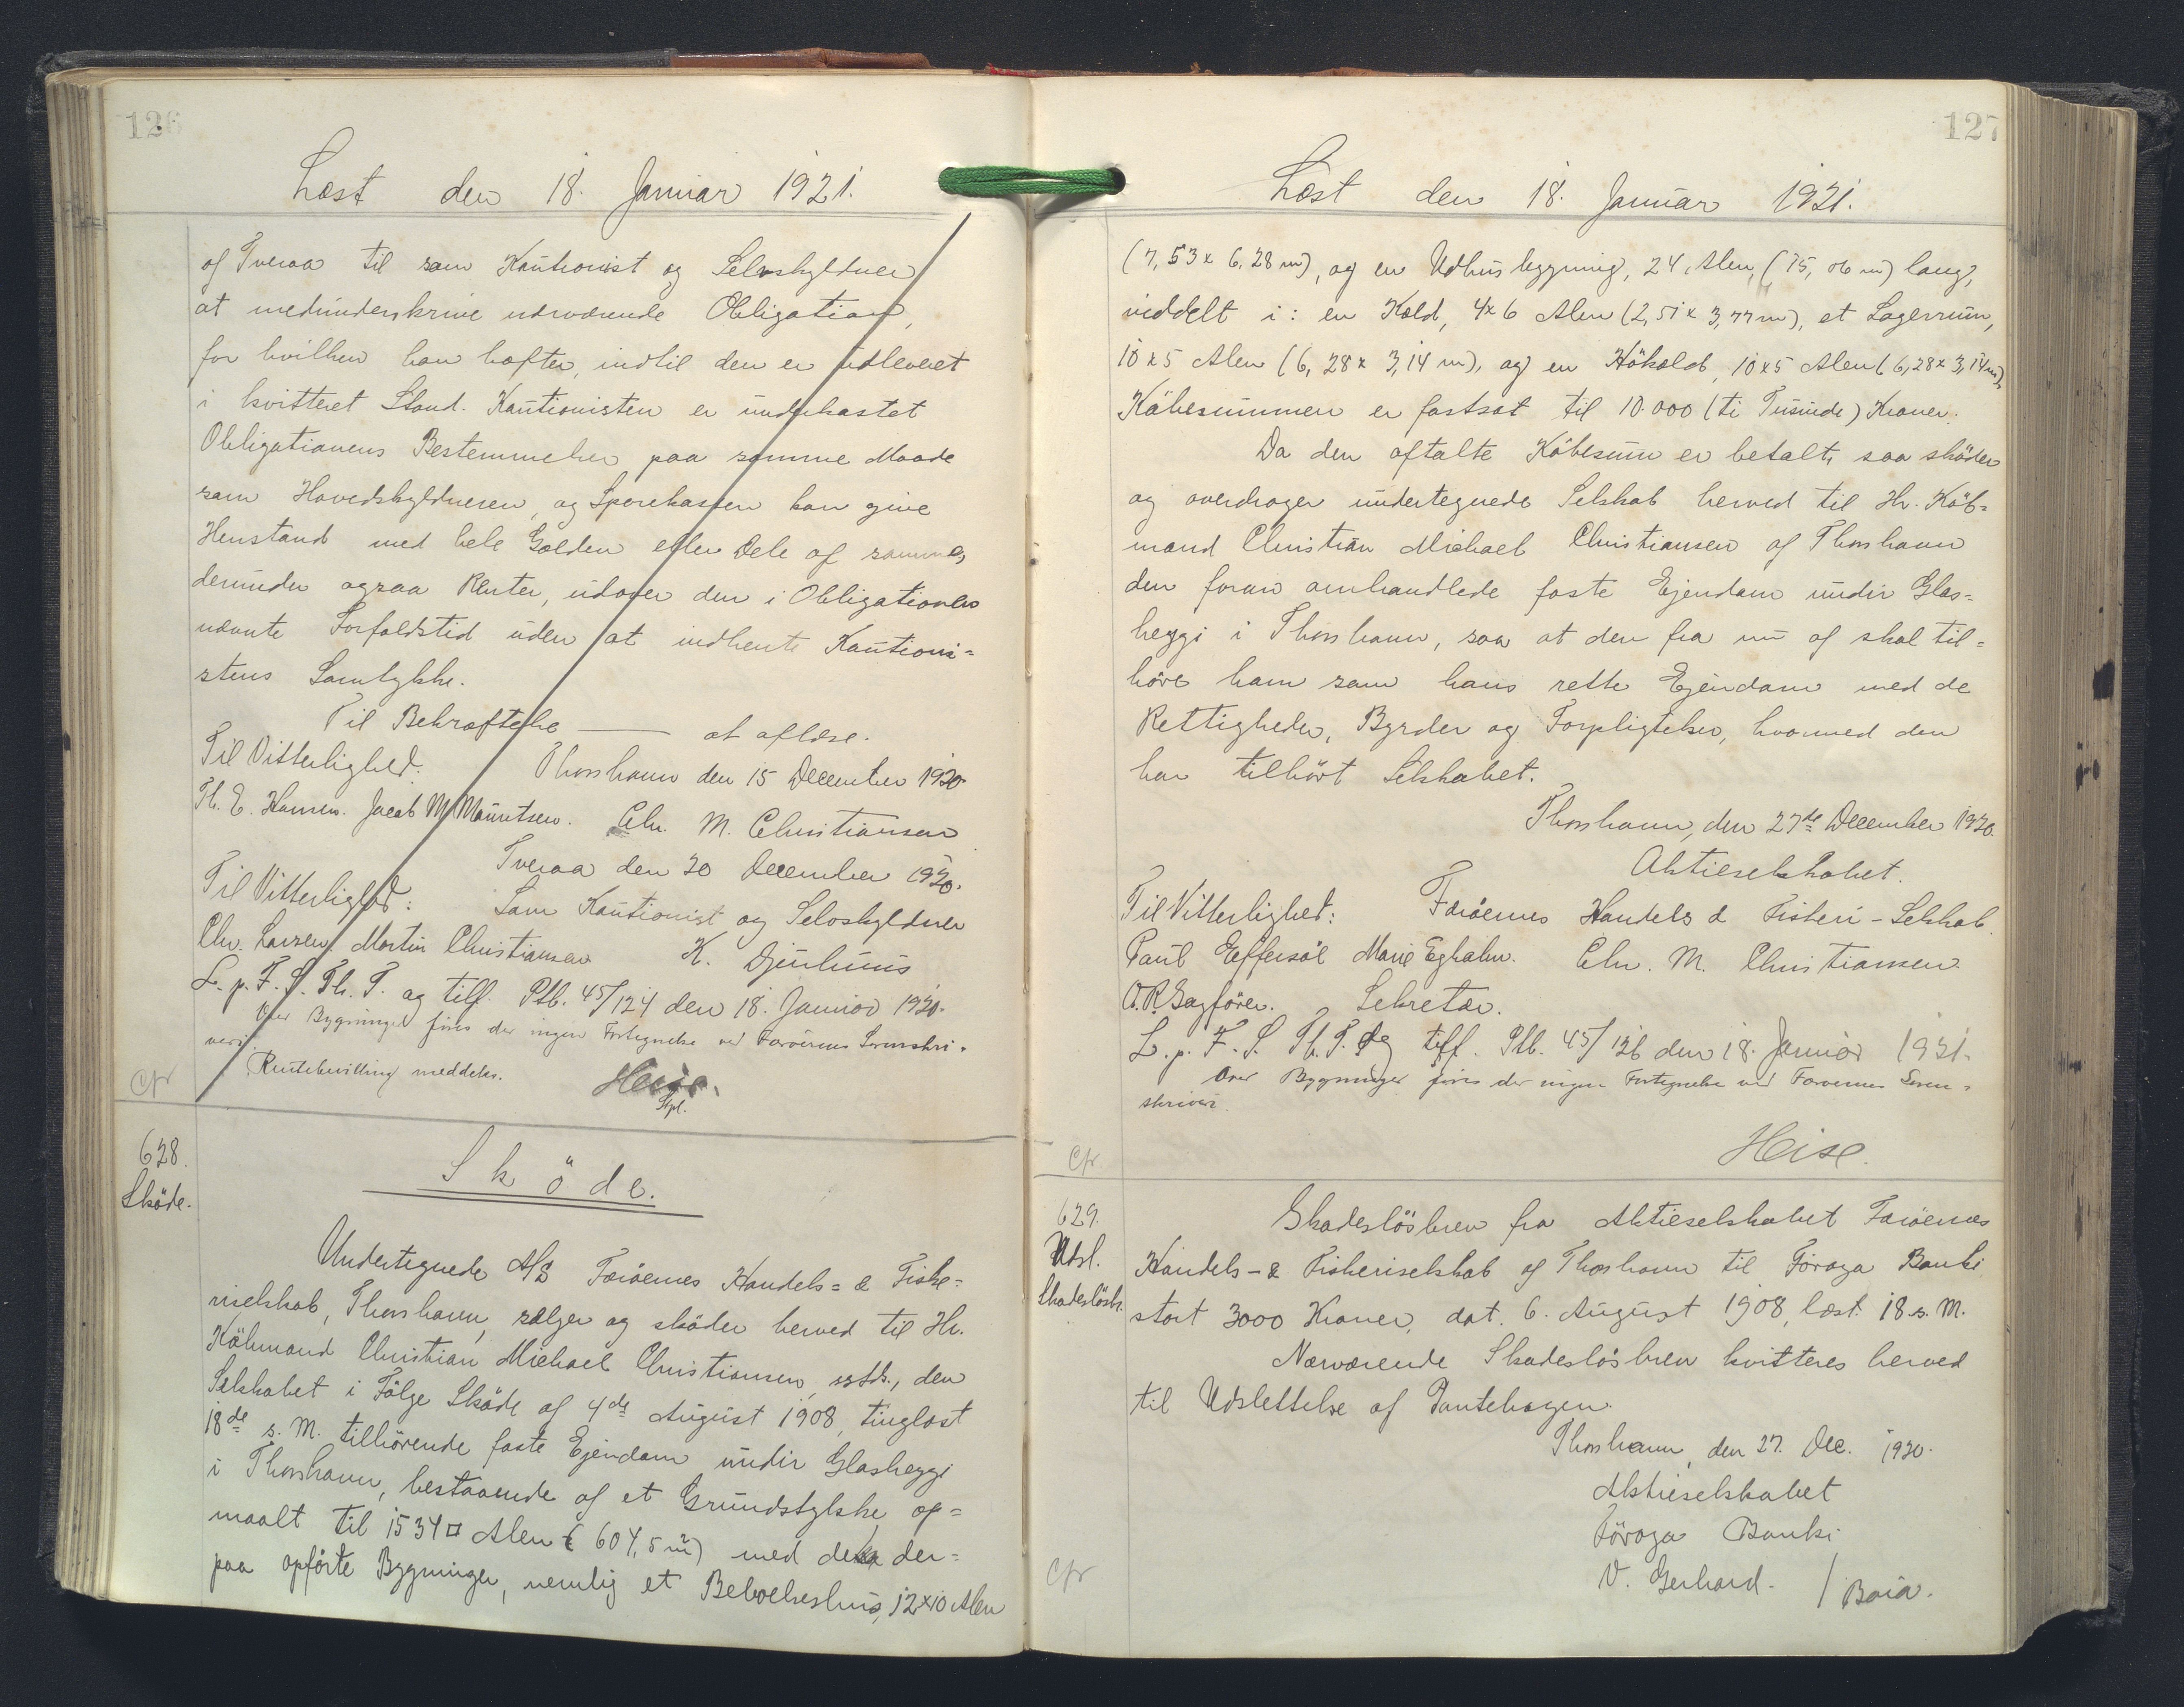 126
Læst den 18. Januar 1921.
af Tveraa til som Kautionist og Selvskyldner
at medunderskrive nærværende Obligation,
for hvilken han hæfter, indtil den er udleveret
i kvitteret Stand. Kautionisten er underkastet
Obligationens Bestemmelser paa samme Maade
som Hovedskyldneren, og Sparekassen kan give
Henstand med hele Gælden eller Dele af samme,
derunder ogsaa Renter, udover den i Obligationen
nævnte Forfaldstid uden at indhente Kautioni=
stens Samtykke.
Til Bekræftelse ——— at aflæse.
Til Vitterlighed: Thorshavn den 15 December 1920.
Th. E. Hansen. Jacob M. Mouritsen. Chr. M. Christiansen
Tveraa den 20 December 1920.
Til Vitterlighed: Som Kautionist og Selvskyldner
Chr. Larsen. Martin Christiansen K. Djurhuus
L. p. F. S. Th. T. og tilf. Ptb. 45/124 den 18. Januar 1920.
Over Bygninger føres der ingen Fortegnelse ved Færöernes Sorenskri=
veri.
Rentebevilling meddeles.
Heise.
Kpl.
Cfr
628.
Sköde.
Sköde.
Undertegnede A/S Færöernes Handels= & Fiske=
riselskab, Thorshavn, sælger og sköder herved til Hr.
Köbmand Christian Michael Christiansen, sstds., den
Selskabet i Fölge Sköde af 4de August 1908, tinglæst
18de s. M. tilhörende faste Ejendom undir Glasheyggi
i Thorshavn, bestaaende af et Grundstykke op=
maalt til 1534 □ Alen (604,5 m²) med de der=
paa opförte Bygninger, nemlig et Beboelseshus, 12x10 Alen
127
Læst den 18. Januar 1921.
(7,53 x 6,28 m), og en Udhusbygning, 24 Alen, (15,06 m) lang,
inddelt i: en Kæld, 4x6 Alen (2,51 x 3,77 m), et Lagerrum,
10x5 Alen (6,28 x 3,14 m), og en Hökæld, 10x5 Alen (6,28 x 3,14 m),
Köbesummen er fastsat til 10.000 (ti Tusinde) Kroner.
Da den aftalte Köbesum er betalt, saa sköder
og overdrager undertegnede Selskab herved til Hr. Köb=
mand Christian Michael Christiansen af Thorshavn
den foran omhandlede faste Ejendom undir Glas=
heyggi i Thorshavn, saa at den fra nu af skal til=
höre ham som hans rette Ejendom med de
Rettigheder, Byrder og Forpligtelser, hvormed den
har tilhört Selskabet.
Thorshavn, den 27de December 1920.
Aktieselskabet.
Til Vitterlighed: Færöernes Handels & Fiskeri-Selskab.
Paul Effersöe Marie Egholm. Chr. M. Christiansen.
O.R.Sagförer. Sekretær.
L. p. F. S. Th. T. og tilf. Ptb. 45/126 den 18. Januar 1921.
Over Bygninger føres der ingen Fortegnelse ved Færöernes Soren=
skriveri.
Heise.
Cfr
629.
Udsl.
Skadeslösbr.
Skadeslösbrev fra Aktieselskabet Færöernes
Handels- & Fiskeriselskab af Thorshavn til Föroya Banki
stort 3000 Kroner, dat. 6. August 1908, læst 18. s. M.
Nærværende Skadeslösbrev kvitteres herved
til Udslettelse af Pantebogen.
Thorshavn, den 27. Dec. 1920.
Aktieselskabet
Föroya Banki
V. Gerhard. / Baia.
Cfr